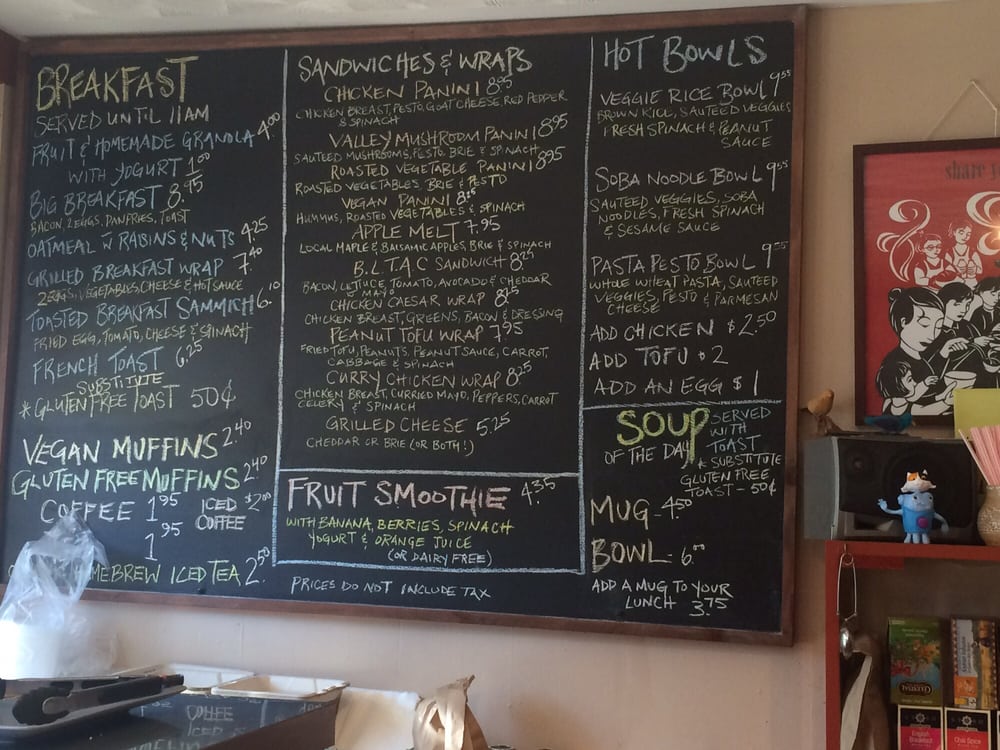 BREAKFAST
SERVED UNTIL 11AM
FRUIT & HOMEMADE GRANOLA 4.00
WITH YOGURT 1.00
BIG BREAKFAST 8.95
BACON, 2 EGGS, PANFRIES, TOAST
OATMEAL W RAISINS & NUTS 4.25
GRILLED BREAKFAST WRAP 7.40
2 EGGS, VEGETABLES, CHEESE & HOT SAUCE
TOASTED BREAKFAST SAMMICH 6.10
FRIED EGG, TOMATO, CHEESE & SPINACH
FRENCH TOAST 6.25
SUBSTITUTE
* GLUTEN FREE TOAST 50¢
VEGAN MUFFINS 2.40
GLUTEN FREE MUFFINS 2.40
COFFEE 1.95 ICED COFFEE $2.00
1.95
HOMEBREW ICED TEA 2.50
SANDWICHES & WRAPS
CHICKEN PANINI 8.95
CHICKEN BREAST, PESTO, GOAT CHEESE, RED PEPPER
& SPINACH
VALLEY MUSHROOM PANINI 8.95
SAUTEED MUSHROOMS, PESTO, BRIE & SPINACH
ROASTED VEGETABLE PANINI 8.95
ROASTED VEGETABLES, BRIE & PESTO
VEGAN PANINI
HUMMUS, ROASTED VEGETABLES & SPINACH
APPLE MELT 7.95
LOCAL MAPLE & BALSAMIC APPLES, BRIE & SPINACH
B.L.T.A.C SANDWICH 8.25
BACON, LETTUCE, TOMATO, AVOCADO & CHEDDAR
MAYO
CHICKEN CAESAR WRAP 8.25
CHICKEN BREAST, GREENS, BACON & DRESSING
PEANUT TOFU WRAP 7.95
FRIED TOFU, PEANUTS, PEANUT SAUCE, CARROT,
CABBAGE & SPINACH
CURRY CHICKEN WRAP 8.25
CHICKEN BREAST, CURRIED MAYO, PEPPERS, CARROT
CELERY & SPINACH
GRILLED CHEESE 5.25
CHEDDAR OR BRIE (OR BOTH!)
FRUIT SMOOTHIE 4.35
WITH BANANA, BERRIES, SPINACH
YOGURT & ORANGE JUICE
(OR DAIRY FREE)
PRICES DO NOT INCLUDE TAX
HOT BOWLS
VEGGIE RICE BOWL 9.55
BROWN RICE, SAUTEED VEGGIES
FRESH SPINACH & PEANUT
SAUCE
SOBA NOODLE BOWL 9.55
SAUTEED VEGGIES, SOBA
NOODLES, FRESH SPINACH
& SESAME SAUCE
PASTA PESTO BOWL 9.55
WHOLE WHEAT PASTA, SAUTEED
VEGGIES, PESTO & PARMESAN
CHEESE
ADD CHICKEN $2.50
ADD TOFU $2
ADD AN EGG $1
SOUP
OF THE DAY
SERVED
WITH
TOAST
* SUBSTITUTE
GLUTEN FREE
TOAST - 50¢
MUG - 4.50
BOWL - 6.00
ADD A MUG TO YOUR
LUNCH 3.75
share
CELESTIAL
English
Breakfast
Chai Spice
COFFEE
ICED